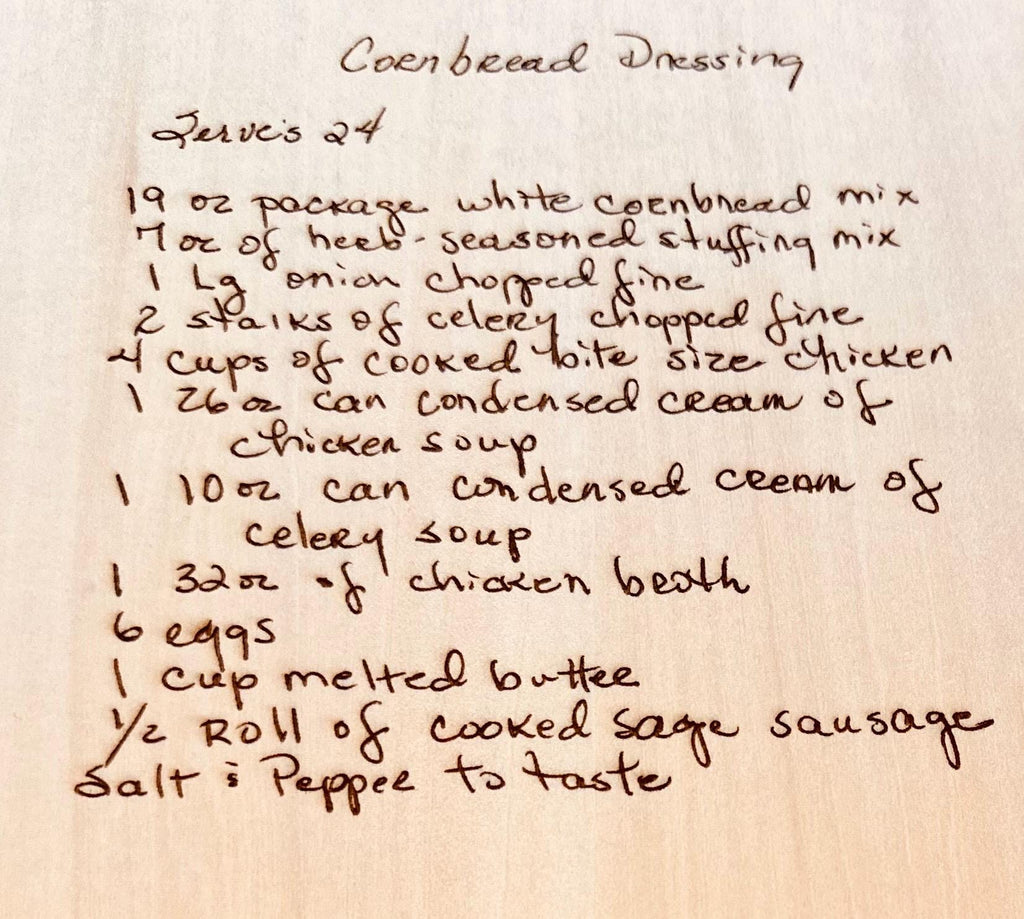 Cornbread Dressing
Serve's 24
19 oz package white cornbread mix
7 oz of herb-seasoned stuffing mix
1 Lg onion chopped fine
2 stalks of celery chopped fine
4 cups of cooked bite size chicken
1 26 oz can condensed cream of
chicken soup
1 10 oz can condensed cream of
celery soup
1 32 oz of chicken broth
6 eggs
1 cup melted butter
1/2 Roll of cooked sage sausage
Salt & Pepper to taste